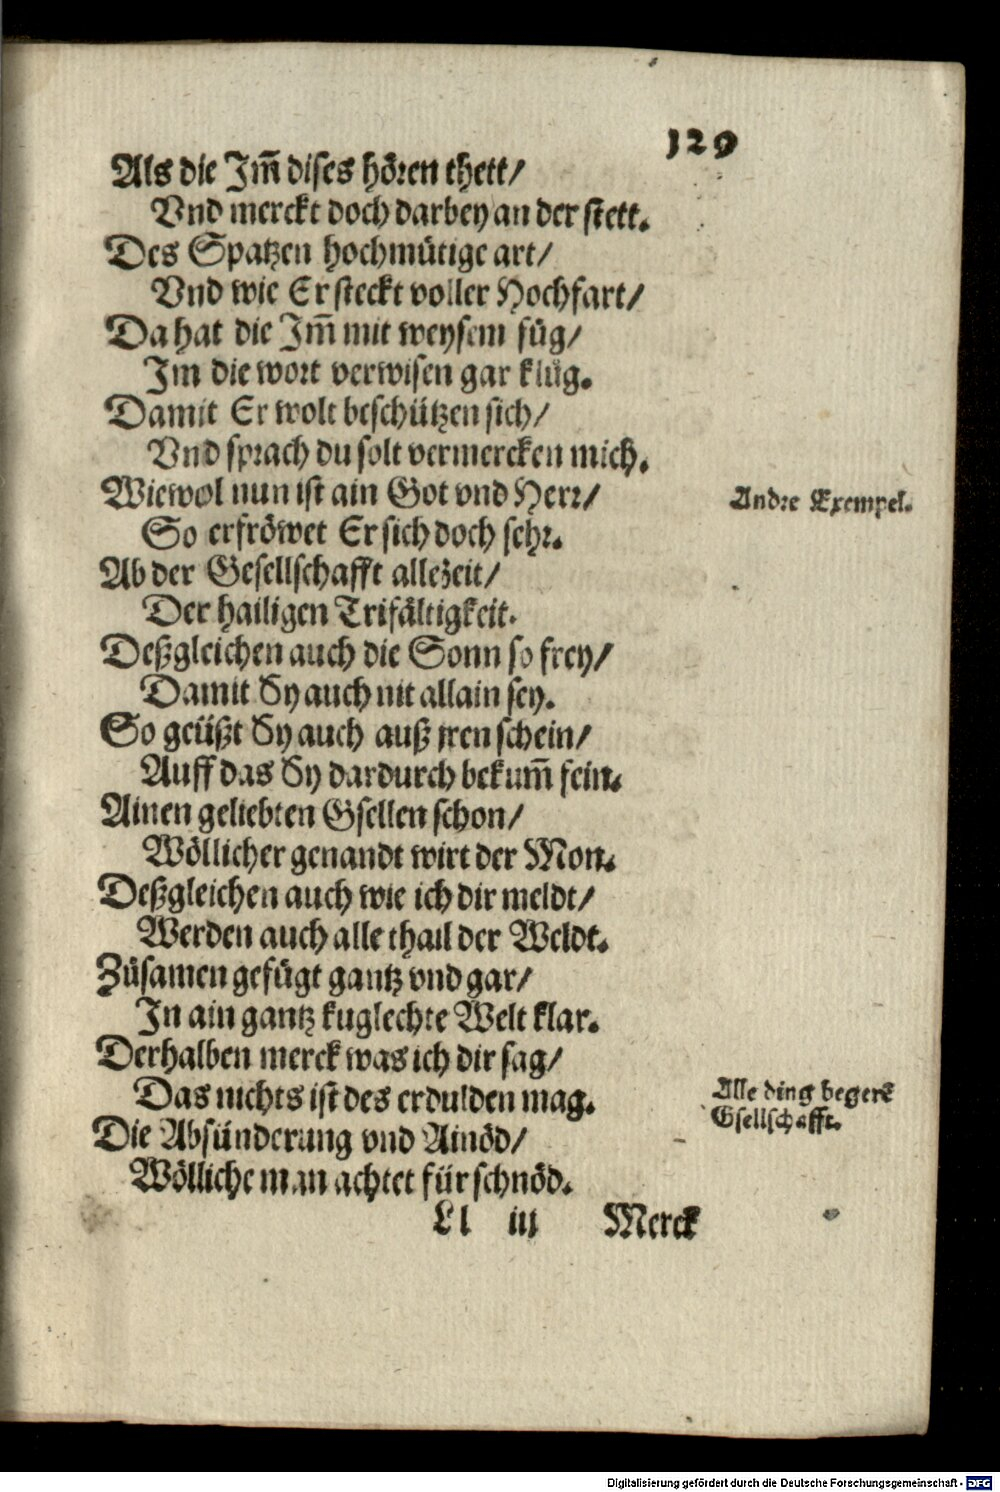 129
Als die Im̃ dises hören thett/
Vnd merckt doch darbey an der stett.
Des Spatzen hochmütige art/
Vnd wie Er steckt voller Hochfart/
Da hat die Im̃ mit weysem fůg/
Im die wort verwisen gar klůg.
Damit Er wolt beschützen sich/
Vnd sprach du solt vermercken mich.
Wiewol nun ist ain Got vnd Herr/
Andre Exempel.
So erfröwet Er sich doch sehr.
Ab der Gesellschafft allezeit/
Der hailigen Trifältigkeit.
Deßgleichen auch die Sonn so frey/
Damit Sy auch nit allain sey.
So geüßt Sy auch auß jren schein/
Auff das Sy dardurch bekum̃ fein.
Ainen geliebten Gsellen schon/
Wöllicher genandt wirt der Mon.
Deßgleichen auch wie ich dir meldt/
Werden auch alle thail der Weldt.
Zůsamen gefügt gantz vnd gar/
In ain gantz kuglechte Welt klar.
Derhalben merck was ich dir sag/
Das nichts ist des erdulden mag.
Alle ding begerẽ
Gsellschafft.
Die Absünderung vnd Ainöd/
Wölliche man achtet für schnöd.
Ll iii Merck
Digitalisierung gefördert durch die Deutsche Forschungsgemeinschaft - DFG